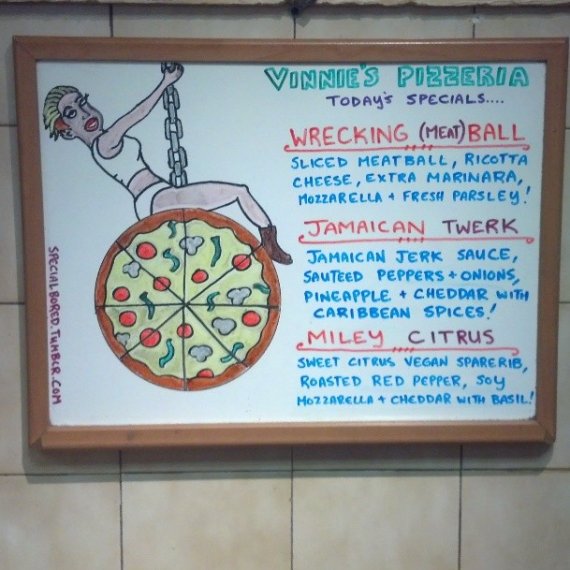 VINNIE'S PIZZERIA
TODAY'S SPECIALS....
WRECKING (MEAT) BALL
SLICED MEATBALL, RICOTTA
CHEESE, EXTRA MARINARA,
MOZZARELLA + FRESH PARSLEY!
JAMAICAN TWERK
JAMAICAN JERK SAUCE,
SAUTEED PEPPERS + ONIONS,
PINEAPPLE + CHEDDAR WITH
CARIBBEAN SPICES!
MILEY CITRUS
SWEET CITRUS VEGAN SPARERIB,
ROASTED RED PEPPER, SOY
MOZZARELLA + CHEDDAR WITH BASIL!
SPECIALBORED.TUMBLR.COM